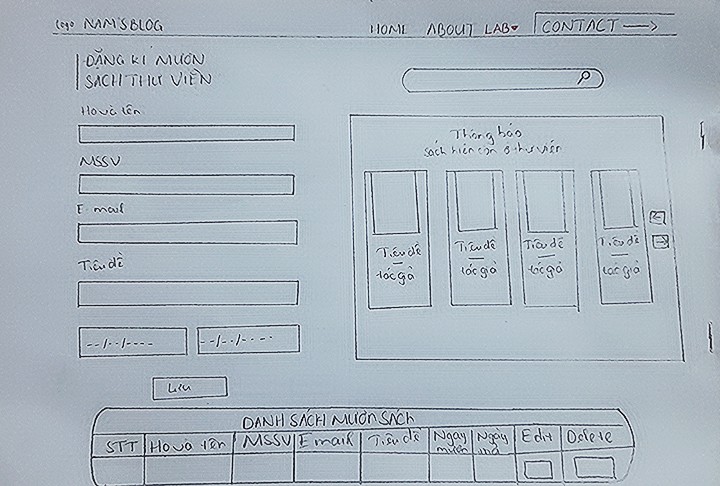 logo NAM'S BLOG
HOME ABOUT LAB♥ CONTACT →
ĐĂNG KÍ MƯỢN
SÁCH THƯ VIỆN
Họ và tên
MSSV
E-mail
Tiêu đề
--/--/----
--/--/----
Lưu
Thông báo
sách hiện còn ở thư viện
Tiêu đề
tác giả
Tiêu đề
tác giả
Tiêu đề
tác giả
Tiêu đề
tác giả
DANH SÁCH MƯỢN SÁCH
STT Họ và tên MSSV Email Tiêu đề Ngày mượn Ngày trả Edit Delete